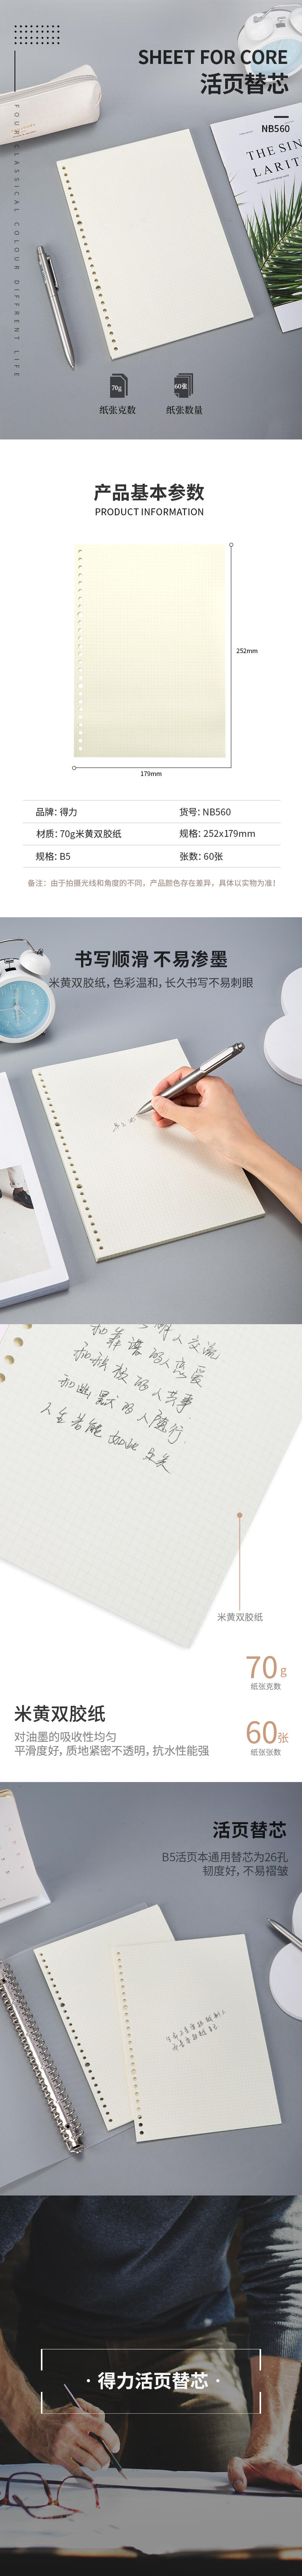 SHEET FOR CORE
活页替芯
NB560
THE SIN
LARIT
FOUR CLASSICAL COLOUR DIFFRENT LIFE
70g
60张
纸张克数
纸张数量
产品基本参数
PRODUCT INFORMATION
252mm
179mm
品牌：得力
货号：NB560
材质：70g米黄双胶纸
规格：252x179mm
规格：B5
张数：60张
备注：由于拍摄光线和角度的不同，产品颜色存在差异，具体以实物为准！
书写顺滑 不易渗墨
米黄双胶纸，色彩温和，长久书写不易刺眼
和靠谱的人恋爱
和幽默的人随行
人生若能如此
米黄双胶纸
70g
纸张克数
60张
纸张张数
米黄双胶纸
对油墨的吸收性均匀
平滑度好，质地紧密不透明，抗水性能强
活页替芯
B5活页本通用替芯为26孔
韧度好，不易褶皱
· 得力活页替芯 ·